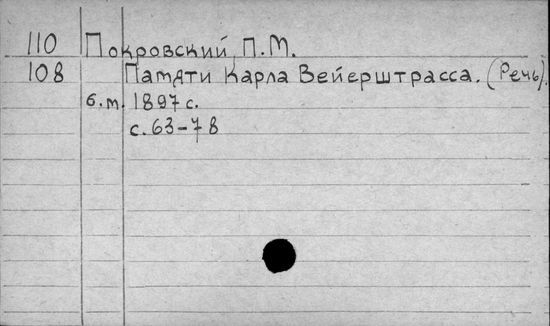 110 Покровский, П.М.
108 Памяти Карла Вейерштрасса. (Речь).
б.м. 1897 с.
с. 63-78